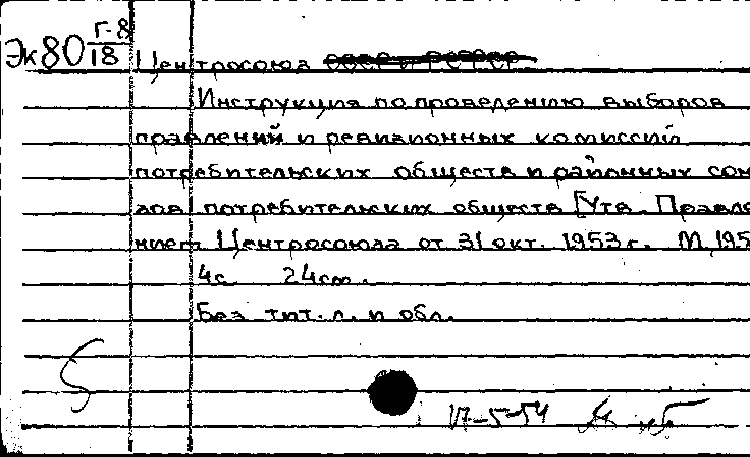 Эк80 Г-8/18
Центросоюза СССР и РСФСР
Инструкция по проведению выборов
правлений и ревизионных комиссий
потребительских обществ и районных сою
зов потребительских обществ [Утв. Правле
нием Центросоюза от 31 окт. 1953 г. М, 195
4с 24cm.
Без тит. л. и обл.
17-5-54